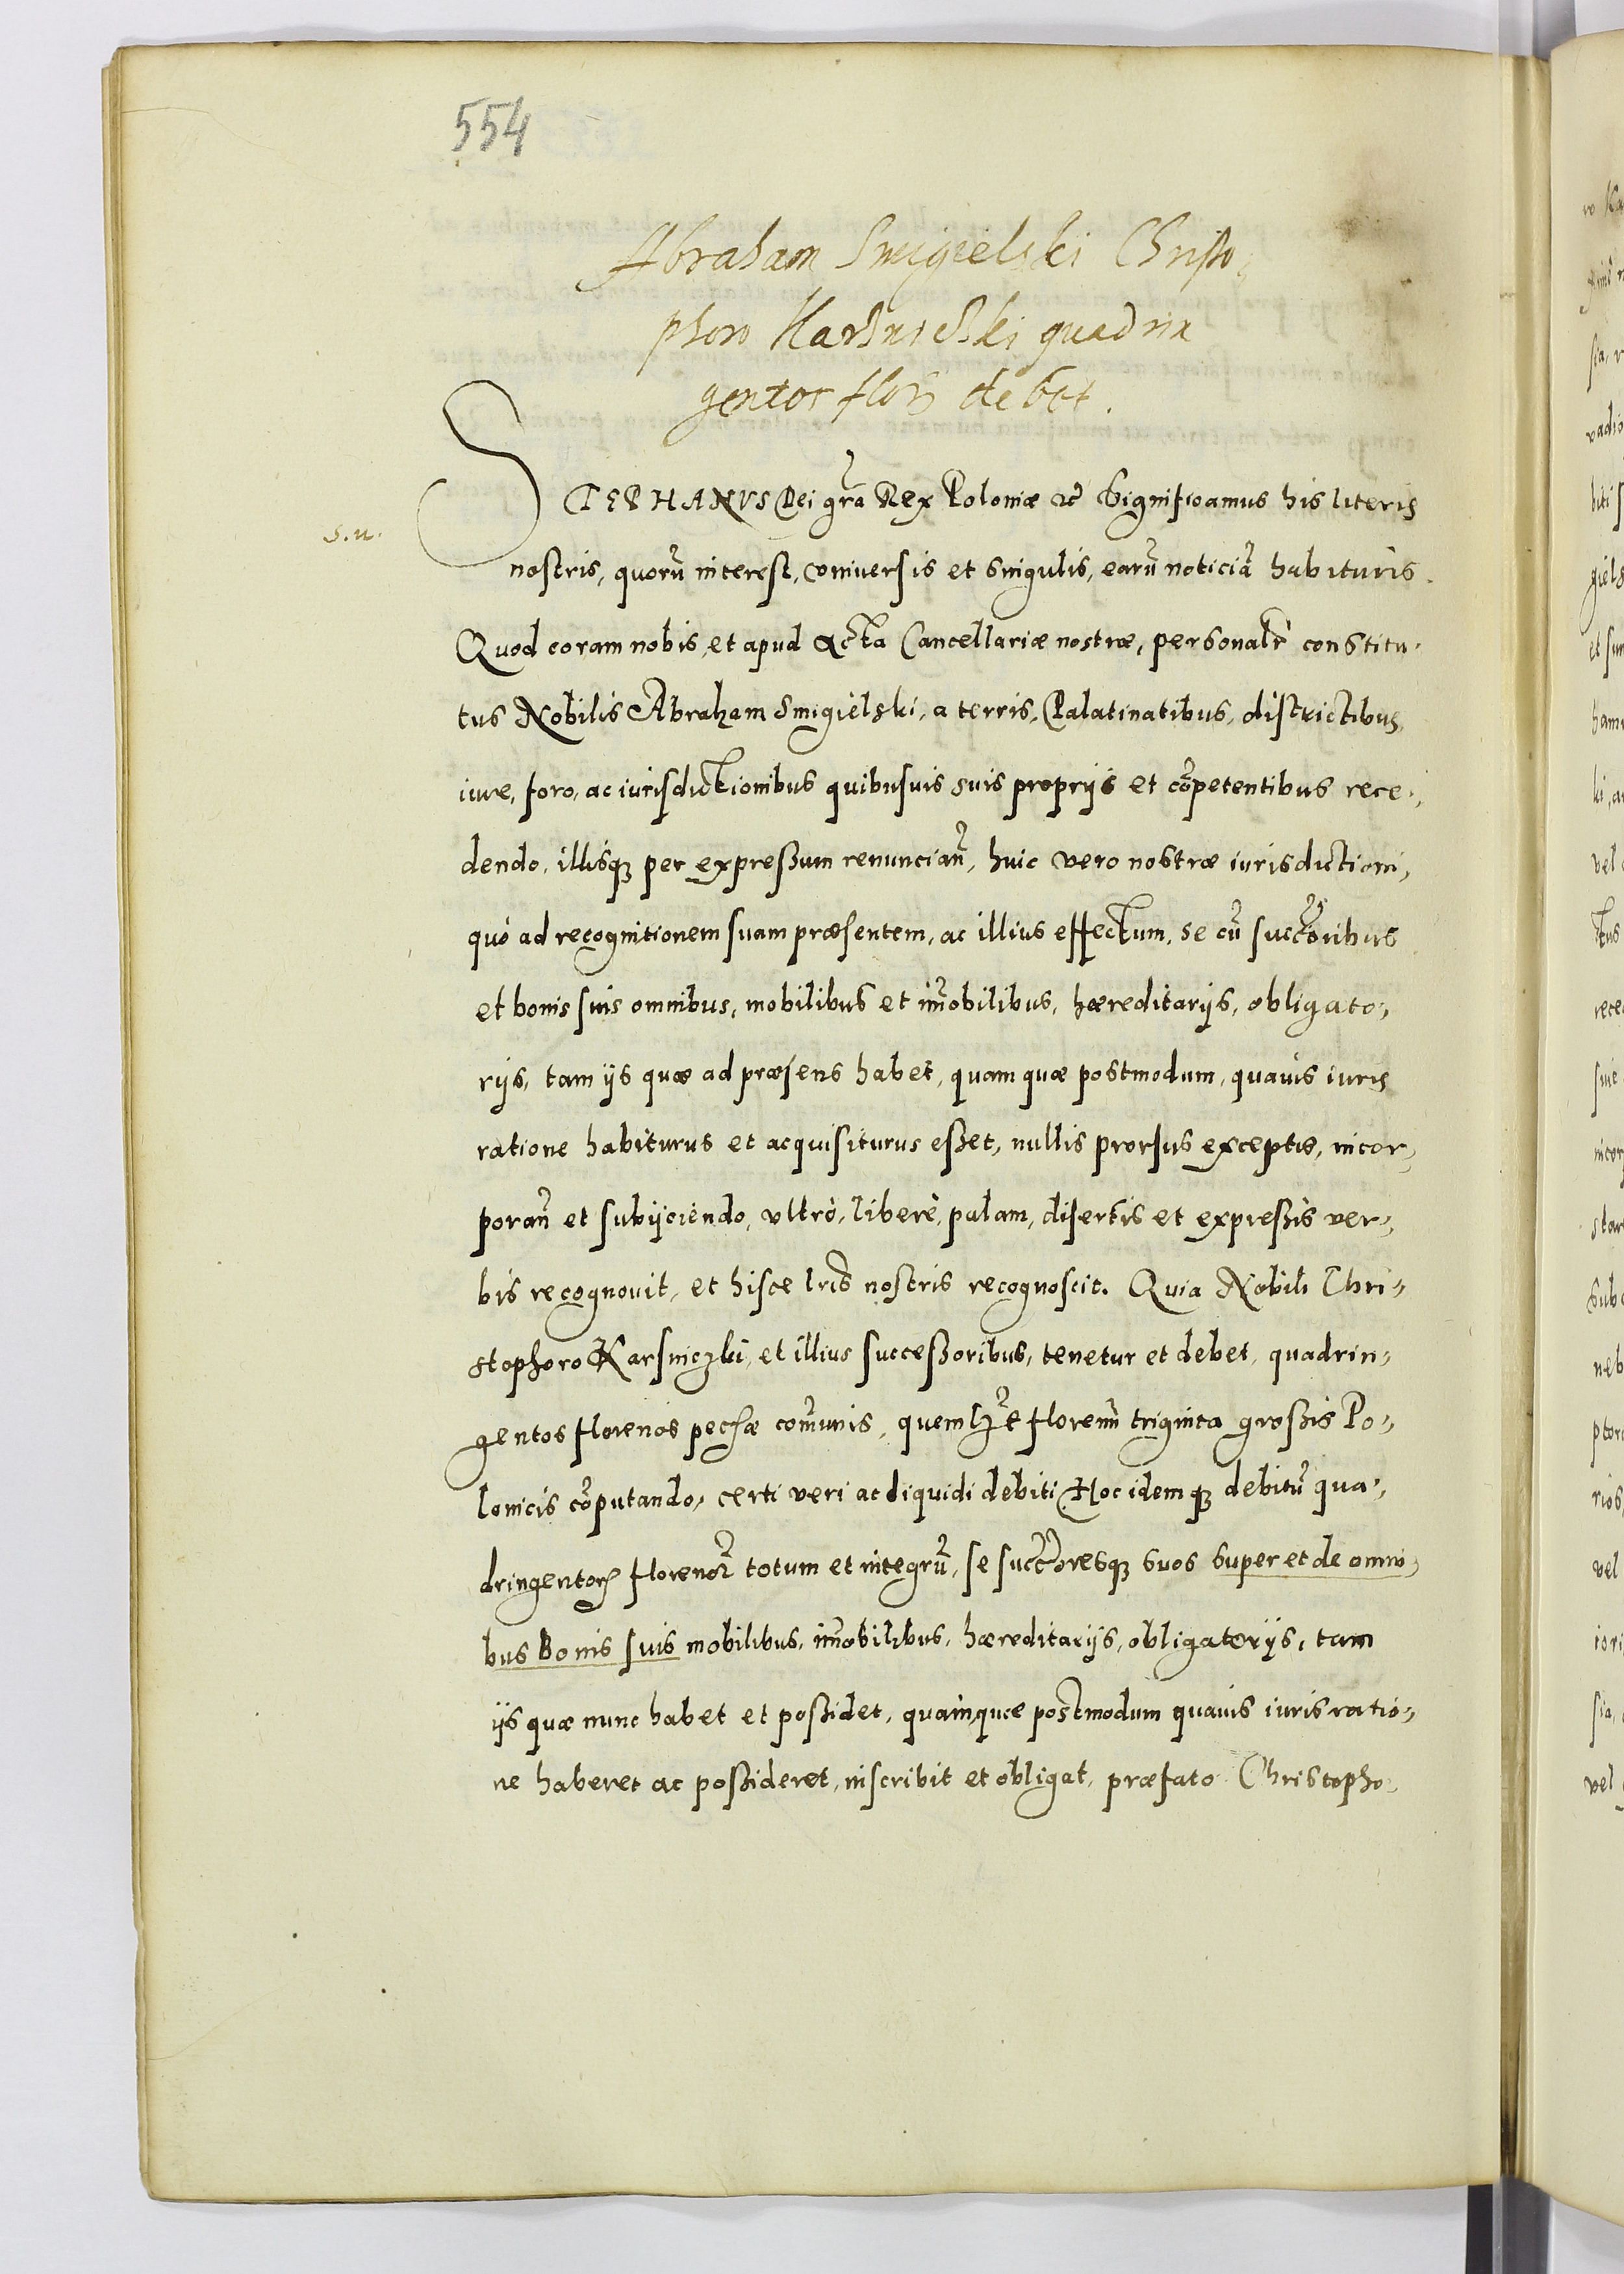 554
Abraham Smigielski Christo,
phoro Karsnicski quadrin
gentos flor̃ debet.
s. n.
STEPHANVS Dei gr̃a Rex Poloniæ &c̃ Significamus his literis
nostris, quorũ interest, vniuersis et singulis, earũ noticiã habituris.
Quod coram nobis, et apud Acta Cancellariæ nostræ, personalr̃ constitu,
tus Nobilis Abraham Smigielski, a terris, Palatinatibus, districtibus,
iure, foro, ac iurisdictionibus quibusuis suis proprijs et cõpetentibus rece,
dendo, illisq; per expreßum renuncian̄, huic vero nostræ iurisdictioni,
quò ad recognitionem suam præsentem, ac illius effectum, se cũ succ̃oribus
et bonis suis omnibus, mobilibus et im̃obilibus, hæreditarijs, obligato,
rijs, tam ijs quæ ad præsens habet, quam quæ postmodum, quauis iuris
ratione habiturus et acquisiturus eßet, nullis prorsus exceptis, incor,
poran̄ et subijciendo, vltrò, liberè, palam, disertis et expreßis ver,
bis recognouit, et hisce lr̃is nostris recognoscit. Quia Nobili Chri,
stophoro Karsniczki, et illius succeßoribus, tenetur et debet, quadrin,
gentos florenos pec̃hæ com̃unis, quemlz̃t florenũ triginta großis Po,
lonicis cõputando, certi veri ac liquidi debiti Hoc idemq; debitũ qua,
dringentorꝝ florenor̃ totum et integrũ, se succ̃oresq; suos super et de omni,
bus Bonis suis mobilibus, im̃obilibus, hæreditarijs, obligatorijs, tam
ijs quæ nunc habet et poßidet, quam, quæ postmodum quauis iuris ratio,
ne haberet ac poßideret, inscribit et obligat, præfato Christopho,